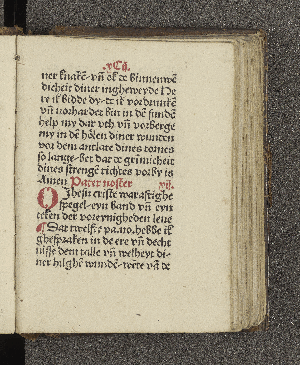 ner knakē· vñ ek de binnenwē
dicheit diner ingheweyde O de
re ik bidde dy· de ik vordrunkē
vñ vorharder bin in dē sundē
help my dar vth vñ vorberge
my in dē hölen diner wunden
vor dem antlate dines tornes
so lange· bet dat de grimicheit
dines strengē richtes vorby is
Amen Pater noster vij.
O Jhesu criste warafftighe
spegel· eyn band vñ eyn
teken der voreynigheden leue
Dat twelfte pa.no. hebbe ik
ghespraken in de ere vñ decht
nisse dem talle vñ welheyt di-
ner hilghē wundē· were vā de